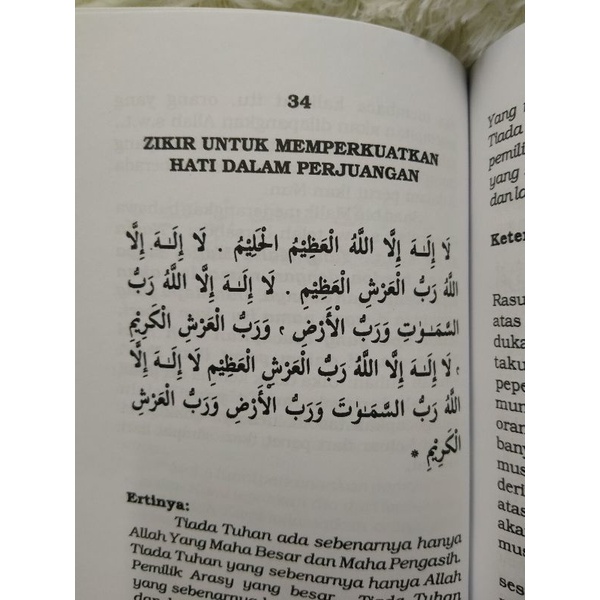 34
ZIKIR UNTUK MEMPERKUATKAN
HATI DALAM PERJUANGAN
لَا إِلَـٰهَ إِلَّا اللَّهُ الْعَظِيْمُ الْحَلِيْمُ . لَا إِلَـٰهَ إِلَّا
اللَّهُ رَبُّ الْعَرْشِ الْعَظِيْمِ . لَا إِلَـٰهَ إِلَّا اللَّهُ رَبُّ
السَّمَـٰوٰتِ وَرَبُّ الْأَرْضِ ، وَرَبُّ الْعَرْشِ الْكَرِيْمِ
، لَا إِلَـٰهَ إِلَّا اللَّهُ رَبُّ الْعَرْشِ الْعَظِيْمِ لَا إِلَـٰهَ إِلَّا
اللَّهُ رَبُّ السَّمَـٰوٰتِ وَرَبُّ الْأَرْضِ وَرَبُّ الْعَرْشِ
الْكَرِيْمِ *
Ertinya:
Tiada Tuhan ada sebenarnya hanya
Allah Yang Maha Besar dan Maha Pengasih.
Tiada Tuhan yang sebenarnya hanya Allah
Pemilik Arasy yang besar. Tiada Tuhan
yang sebenarnya
Yang
Tiada
pemili
yang
dan la
Keter
Rasu
atas
duka
taku
pepe
mun
oran
bany
mus
deri
atas
akan
mus
ses